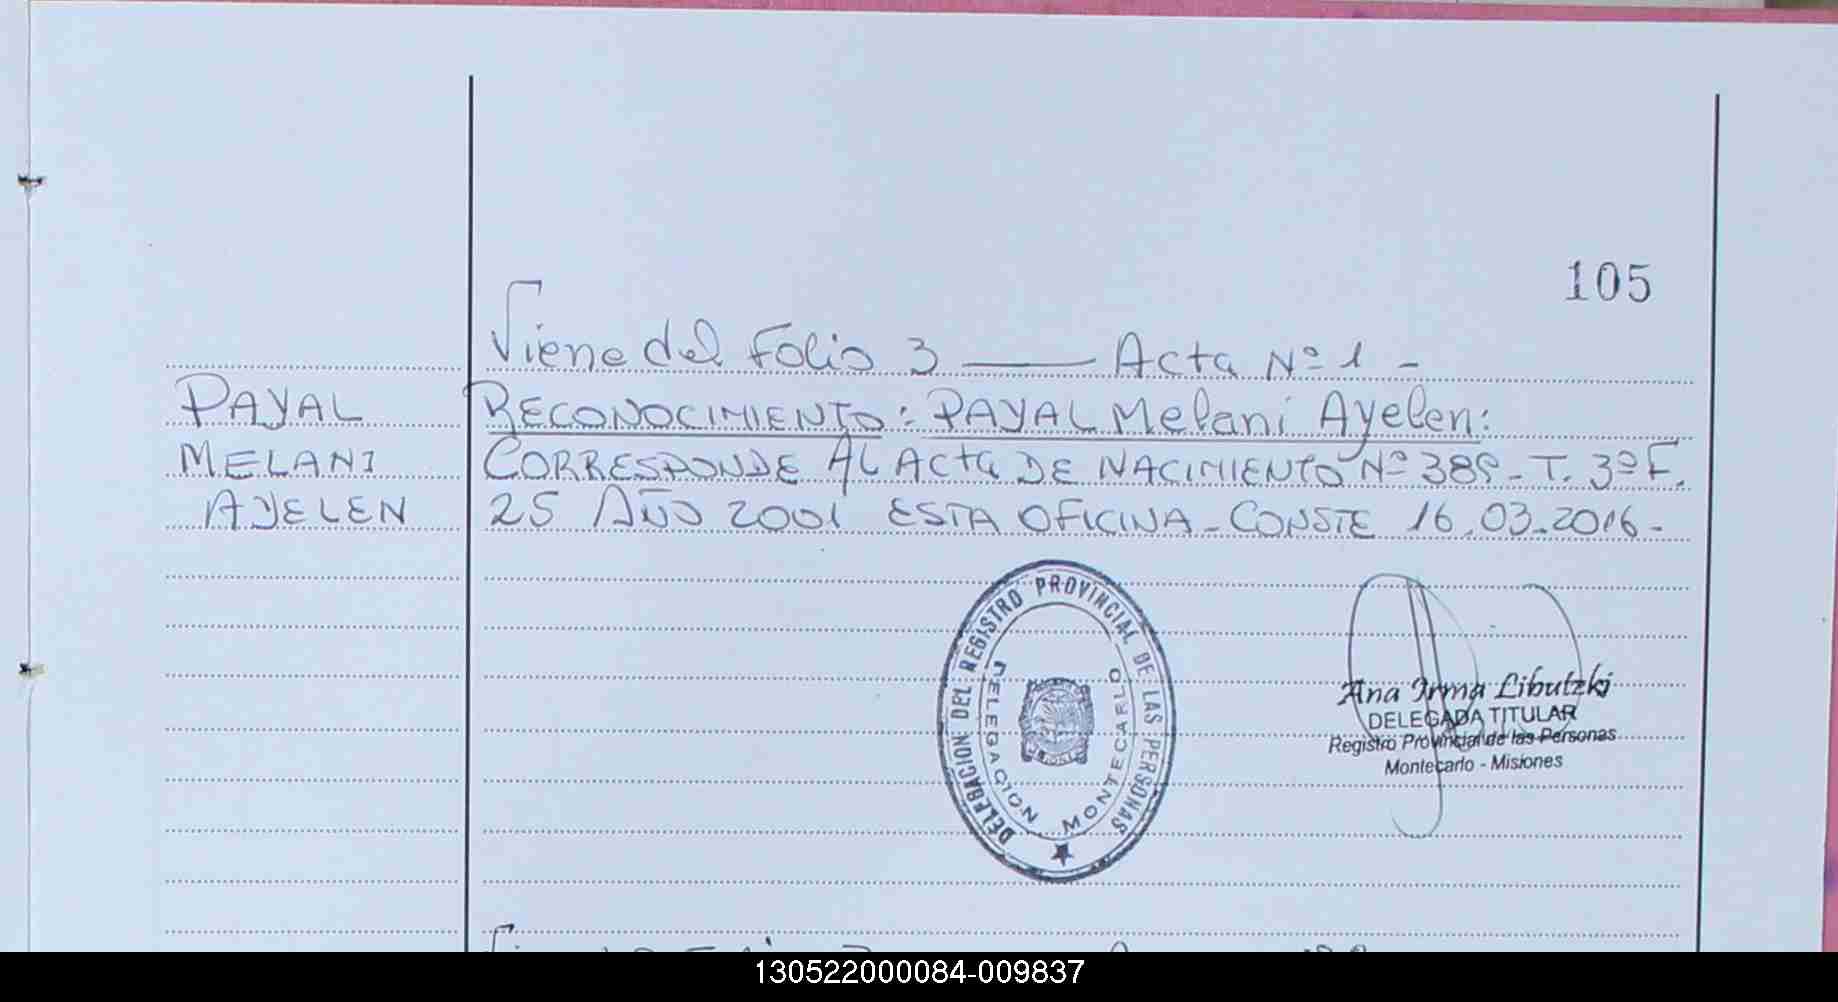 105
Viene del Folio 3 —— Acta Nº 1 -
PAYAL
MELANI
AYELEN
RECONOCIMIENTO: PAYAL Melani Ayelen:
CORRESPONDE AL ACTA DE NACIMIENTO Nº 389 - T. 3º F.
25 AÑO 2001 ESTA OFICINA - CONSTE 16.03.2016 -
DELEGACION DEL REGISTRO PROVINCIAL DE LAS PERSONAS
DELEGACION MONTECARLO
Ana Irma Libutzki
DELEGADA TITULAR
Registro Provincial de las Personas
Montecarlo - Misiones
130522000084-009837